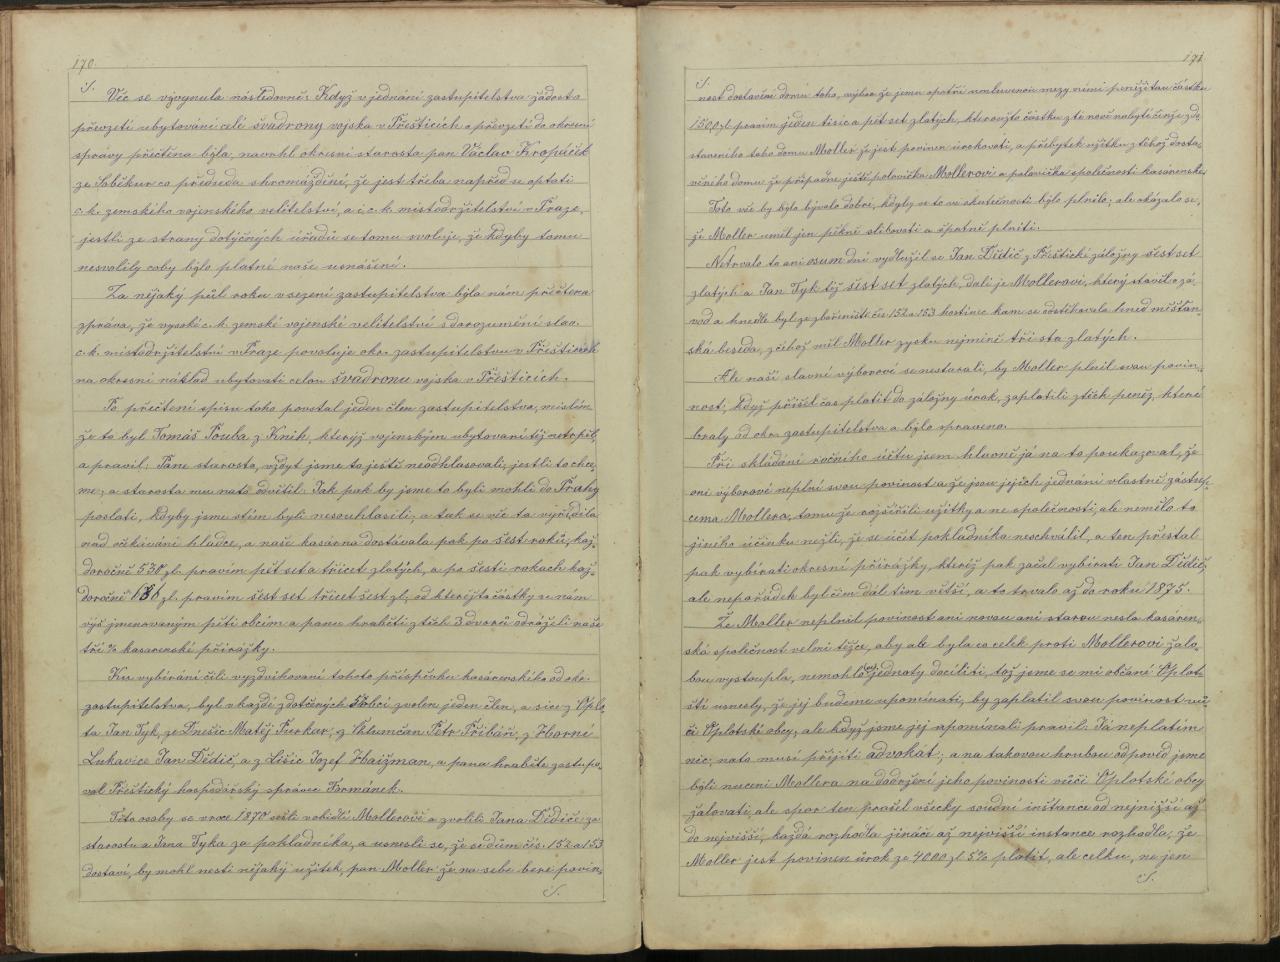 170.
·/.
Věc se vývynula následovně: Když v jednání zastupitelstva žádost o
převzetí ubytování celé švadrony vojska v Přešticích a převzetí do okresní
správy přečtena byla, navrhl okresní starosta pan Václav Kropáček
ze Soběkur co předseda shromáždění, že jest třeba napřed se optati
c. k. zemského vojenského velitelství, a i c. k. místodržitelství v Praze,
jestli ze strany dotyčných úřadů se tomu svoluje, že kdyby tomu
nesvolily coby bylo platné naše usnášení.
Za nějaký půl roku v sezení zastupitelstva byla nám přečtena
zpráva, že vysoké c. k. zemské vojenské velitelství s dorozumění slav.
c. k. místodržitelství v Praze povoluje okr. zastupitelstvu v Přešticích
na okresní náklad ubytovati celou švadronu vojska v Přešticích.
Po přečtení spisu toho povstal jeden člen zastupitelstva, mislím
že to byl Tomáš Pouba z Knih, kterýž vojenským ubytovaní též netrpěl,
a pravil: Pane starosto, vždyt jsme to ještě neodhlasovali, jestli to chce-
me; a starosta mu nato odvětil: Jak pak by jsme to byli mohli do Prahy
poslati, kdyby jsme stím byli nesouhlasili; a tak se věc ta vyřídila
nad očekávání hladce, a naše kasárna dostávala pak po šest roků, kaž-
doročně 530 zl. pravím pět set a třicet zlatých, a po šesti rokach kaž-
doročně 636 zl. pravím šest set třicet šest zl; od kteréjto částky se nám
výš jmenovaným pěti obcím a panu hraběti z těch 3 dvorů odráželi naše
tří % kasarenské přirážky.
Ku vybírání čili vyzdvihovaní tohoto příspěvku kasárenského od okr.
zastupitelstva, byl v každé z dotčených 5 obcí zvolen jeden člen, a sice z Oplo-
ta Jan Tyk, ze Dnešic Matěj Furkur, z Chlumčan Petr Přibáň, z Horní
Lukavice Jan Dědič, a z Lišic Jozef Haizman, a pana hraběte zastupo-
val Přeštický hospodářský správce Formánek.
Tito osoby se vroce 1870 sešli v obidlí Mollerově a zvolili Jana Dědiče za
starostu a Jana Tyka za pokladníka, a usnesli se, že si dům čís. 152 a 153
dostaví, by mohl nesti nějaký užitek, pan Moller že na sebe bere povin-
·/.
171
·/.
nost dostavění domu toho, výbor že jemu opatří nasmluvenou mezy nimi peněžitou částku
1500 zl. pravím jeden tisíc a pět set zlatých, kteroužto částku z té nově nabyté činže z do-
staveního toho domu Moller že jest povinen úrokovati, a přebytek užitku z téhož dosta-
věného domu že připadne ještě polovička Mollerovi a polovička společnosti kasárenské.
Toto vše by bylo bývalo dobré, kdyby se to ve skutečnosti bylo plnilo; ale okázalo se,
že Moller uměl jen pěkně slibovati a špatně plniti.
Netrvalo to ani osum dní vydlužil se Jan Dědič z Přeštické záložny šest set
zlatých a Jan Tyk též šest set zlatých, dali je Mollerovi, který stavěl o zá-
vod a hnedle byl ze zbořeniště čís 152 a 153 hostinec kam se odstěhovala hned měšťan-
ská beseda, z čehož měl Moller zysku nejméně tři sta zlatých.
Ale naší slavní výborové se nestarali, by Moller plnil svou povin-
nost; když přišel čas platit do záložny úrok, zaplatili z těch peněz, které
braly od okr. zastupitelstva a bylo spraveno.
Při skládání ročního účtu jsem hlavně já na to poukazoval, že
oni výborové neplní svou povinost a že jsou jejich jednání vlastně zástup-
cema Mollera, tomu že rozšířili užitky a ne společnosti, ale nemělo to
jiného účinku nežli, že se účet pokladníka neschválil, a ten přestal
pak vybírati okresní přirážky, kteréj pak začal vybírati Jan Dědič,
ale nepořádek byl čím dál tím větší, a to trvalo až do roku 1875.
Že Moller neplnil povinost ani novou ani starou nesla kasáren-
ská společnost velmi těžce, aby ale byla co celek proti Mollerovi žalo-
bou vystoupla, nemohlo se jednoty docíliti, tož jsme se mi občané Oplot-
ští usnesly, že jej budeme upomínati, by zaplatil svou povinost vů-
či Oplotské obcy, ale když jsme jej upomínali pravil: Já neplatím
nic, nato musí přijíti advokát; a na takovou hrubou odpověď jsme
byli nuceni Mollera na dodržení jeho povinosti vůči Oplotské obcy
žalovati, ale spor ten prošel všecky soudní instance od nejnižší až
do nejvišší, každá rozhodla jináče až nejvišší instance rozhodla, že
Moller jest povinen úrok ze 4000 zl 5% platit, ale celku, ne jen
·/.